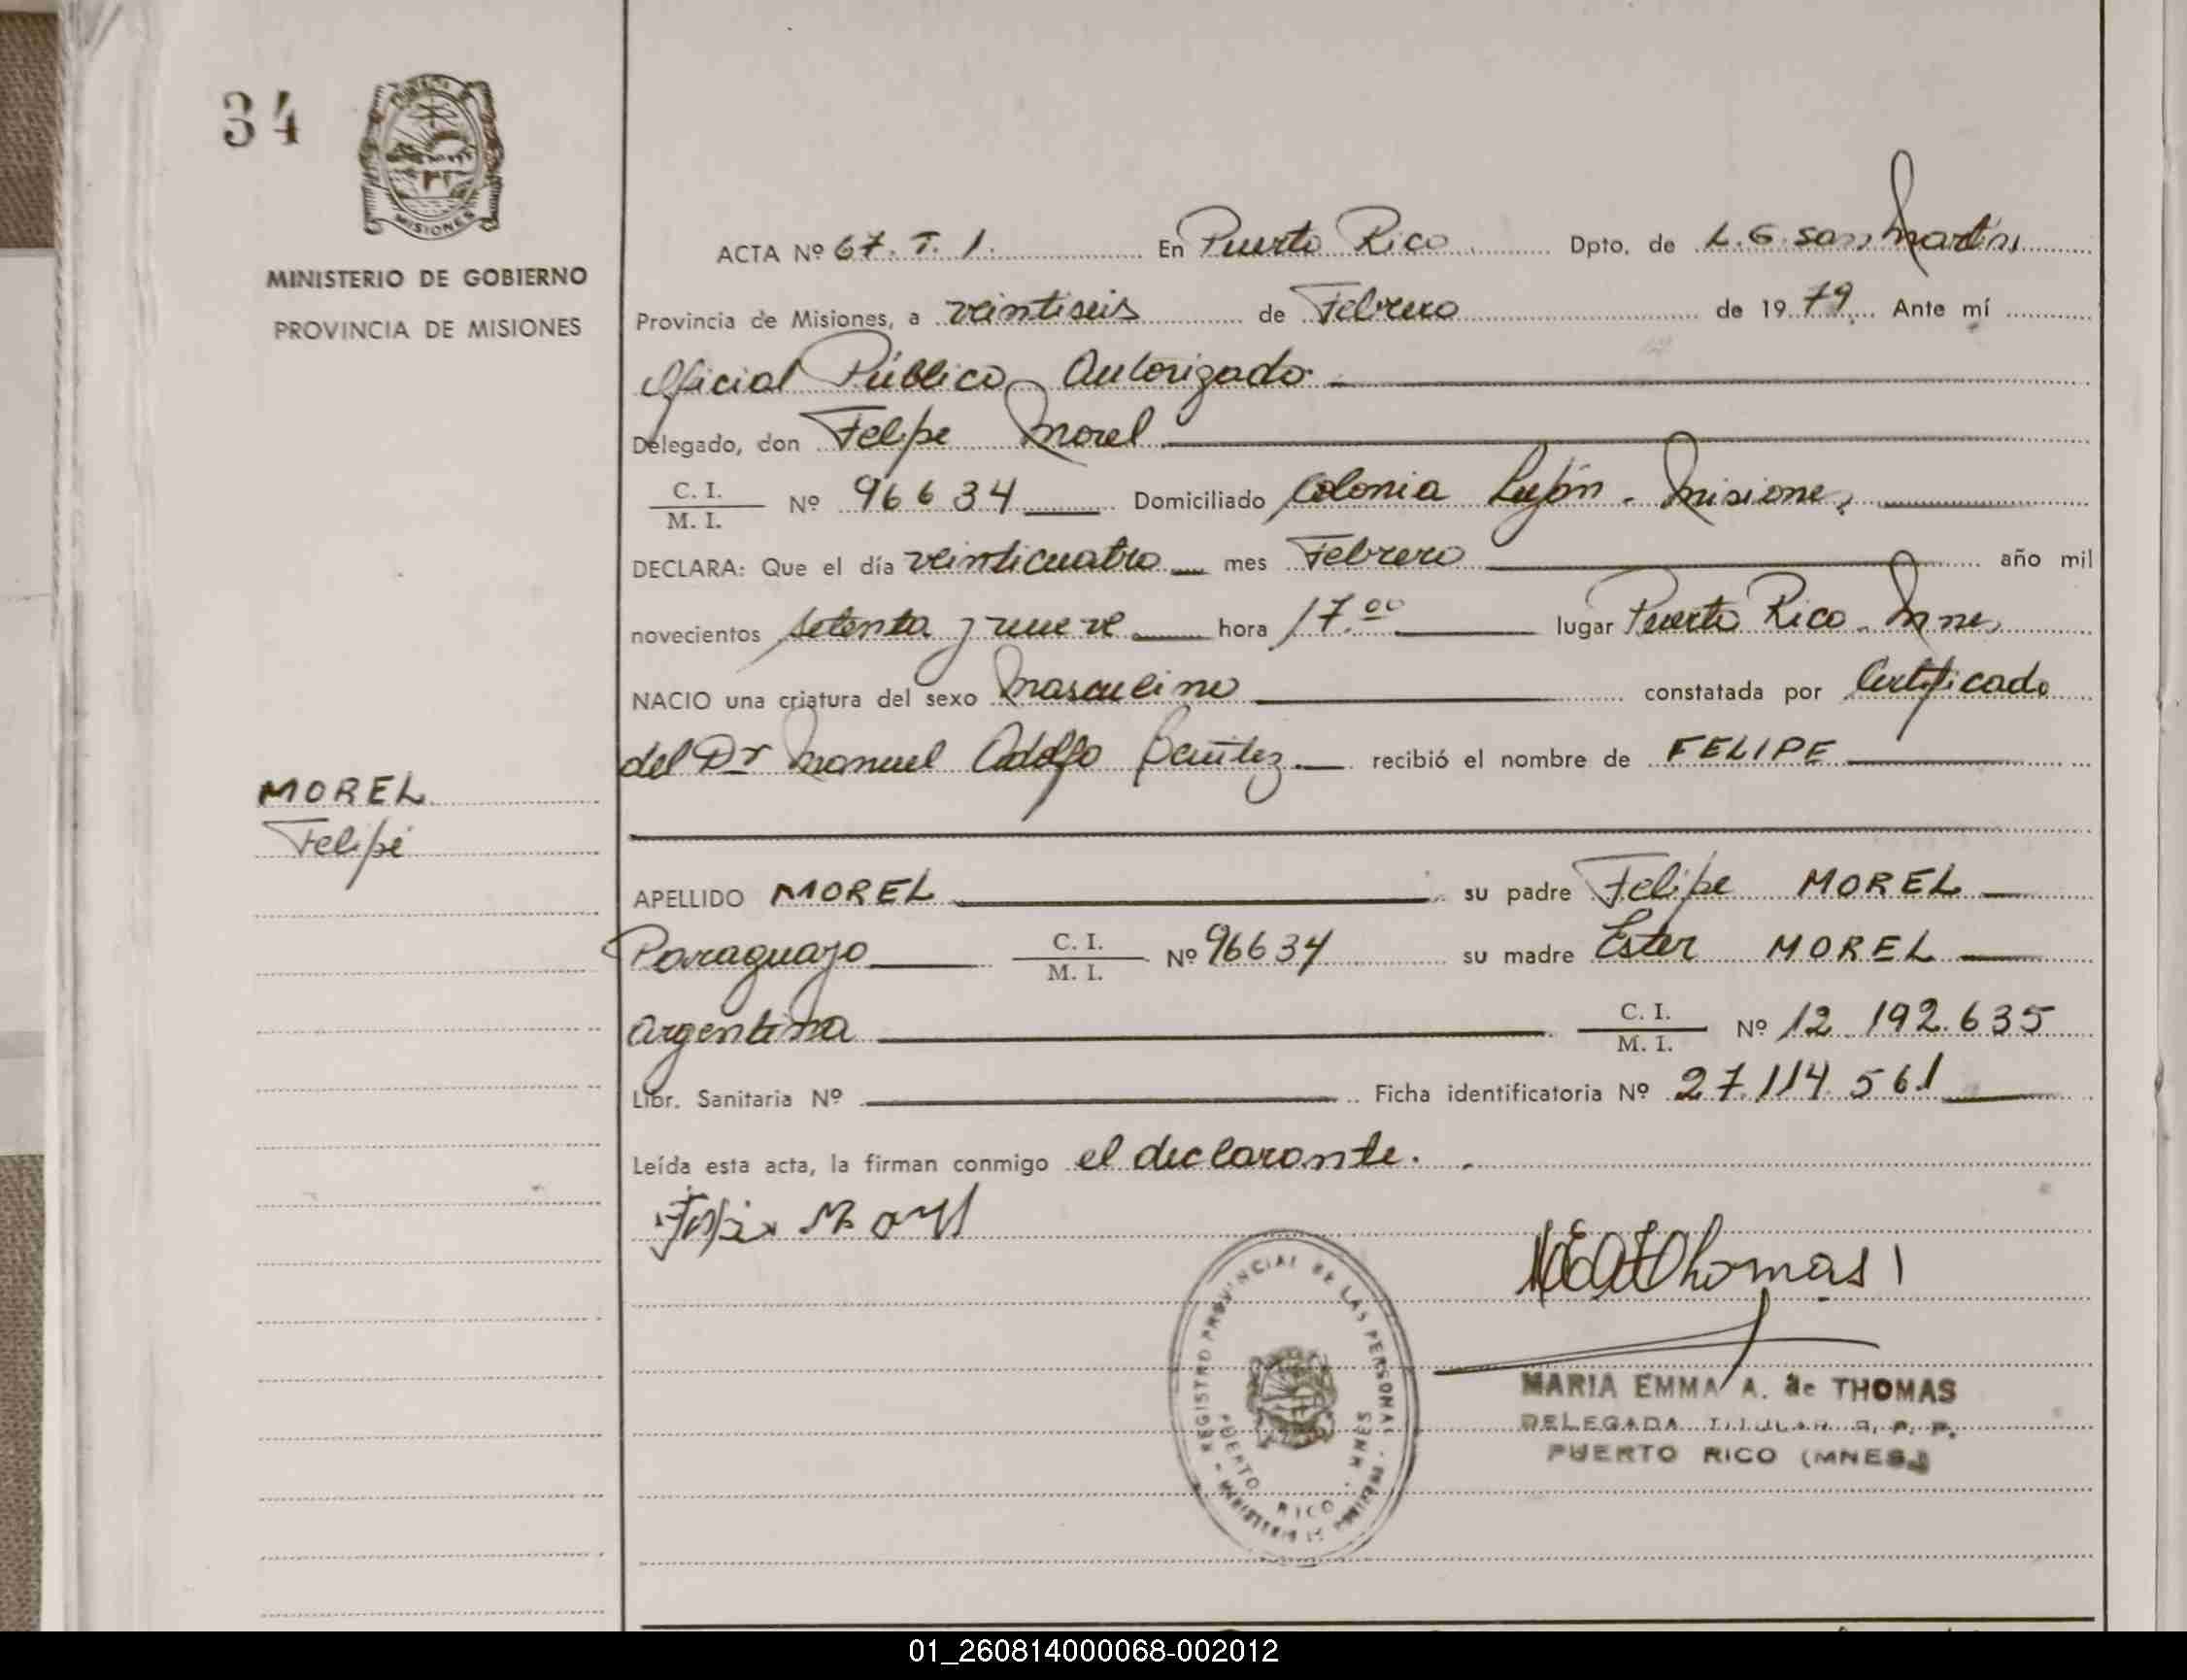 34
MISIONES
MINISTERIO DE GOBIERNO
PROVINCIA DE MISIONES
MOREL
Felipe
ACTA Nº 67. T. 1. En Puerto Rico Dpto. de L. G. San Martín
Provincia de Misiones, a veintiseis de Febrero de 1979 Ante mí
Oficial Público Autorizado.
Delegado, don Felipe Morel
C. I. / M. I. Nº 96634 Domiciliado Colonia Luján - Misiones
DECLARA: Que el día veinticuatro mes Febrero año mil
novecientos setenta y nueve hora 17.00 lugar Puerto Rico - Mnes
NACIO una criatura del sexo Masculino constatada por Certificado
del Dr Manuel Adolfo Benítez recibió el nombre de FELIPE
APELLIDO MOREL su padre Felipe MOREL
Paraguayo C. I. / M. I. Nº 96634 su madre Ester MOREL
Argentina C. I. / M. I. Nº 12.192.635
Libr. Sanitaria Nº Ficha identificatoria Nº 27.114.561
Leída esta acta, la firman conmigo el declarante.
REGISTRO PROVINCIAL DE LAS PERSONAS
PUERTO RICO - MNES
MARIA EMMA A. de THOMAS
DELEGADA TITULAR R. P. P.
PUERTO RICO (MNES.)
01_260814000068-002012